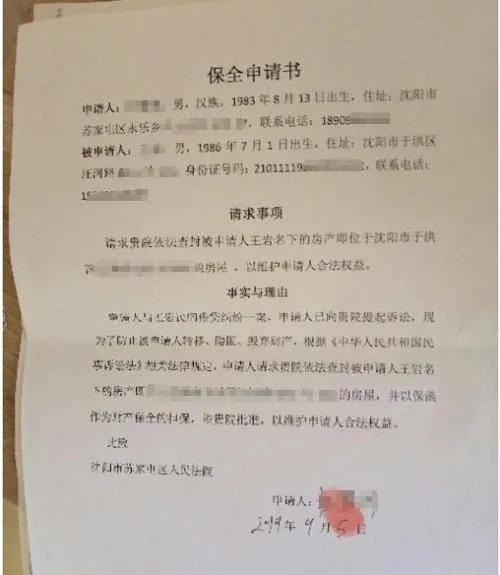 保全申请书
申请人： 男，汉族，1983年8月13日出生，住址：沈阳市
苏家屯区永乐乡 ，联系电话：18909
被申请人： 男，1986年7月1日出生，住址：沈阳市于洪区
汪河路 身份证号码：21011119 联系电话：
15
请求事项
请求贵院依法查封被申请人王岩名下的房产即位于沈阳市于洪
区 的房屋，以维护申请人合法权益。
事实与理由
申请人与王岩民间借贷纠纷一案，申请人已向贵院提起诉讼，现
为了防止被申请人转移、隐匿、毁弃财产，根据《中华人民共和国民
事诉讼法》相关法律规定，申请人请求贵院依法查封被申请人王岩名
下的房产即 的房屋，并以保函
作为财产保全的担保，望贵院批准，以维护申请人合法权益。
此致
沈阳市苏家屯区人民法院
申请人：
年9月5日